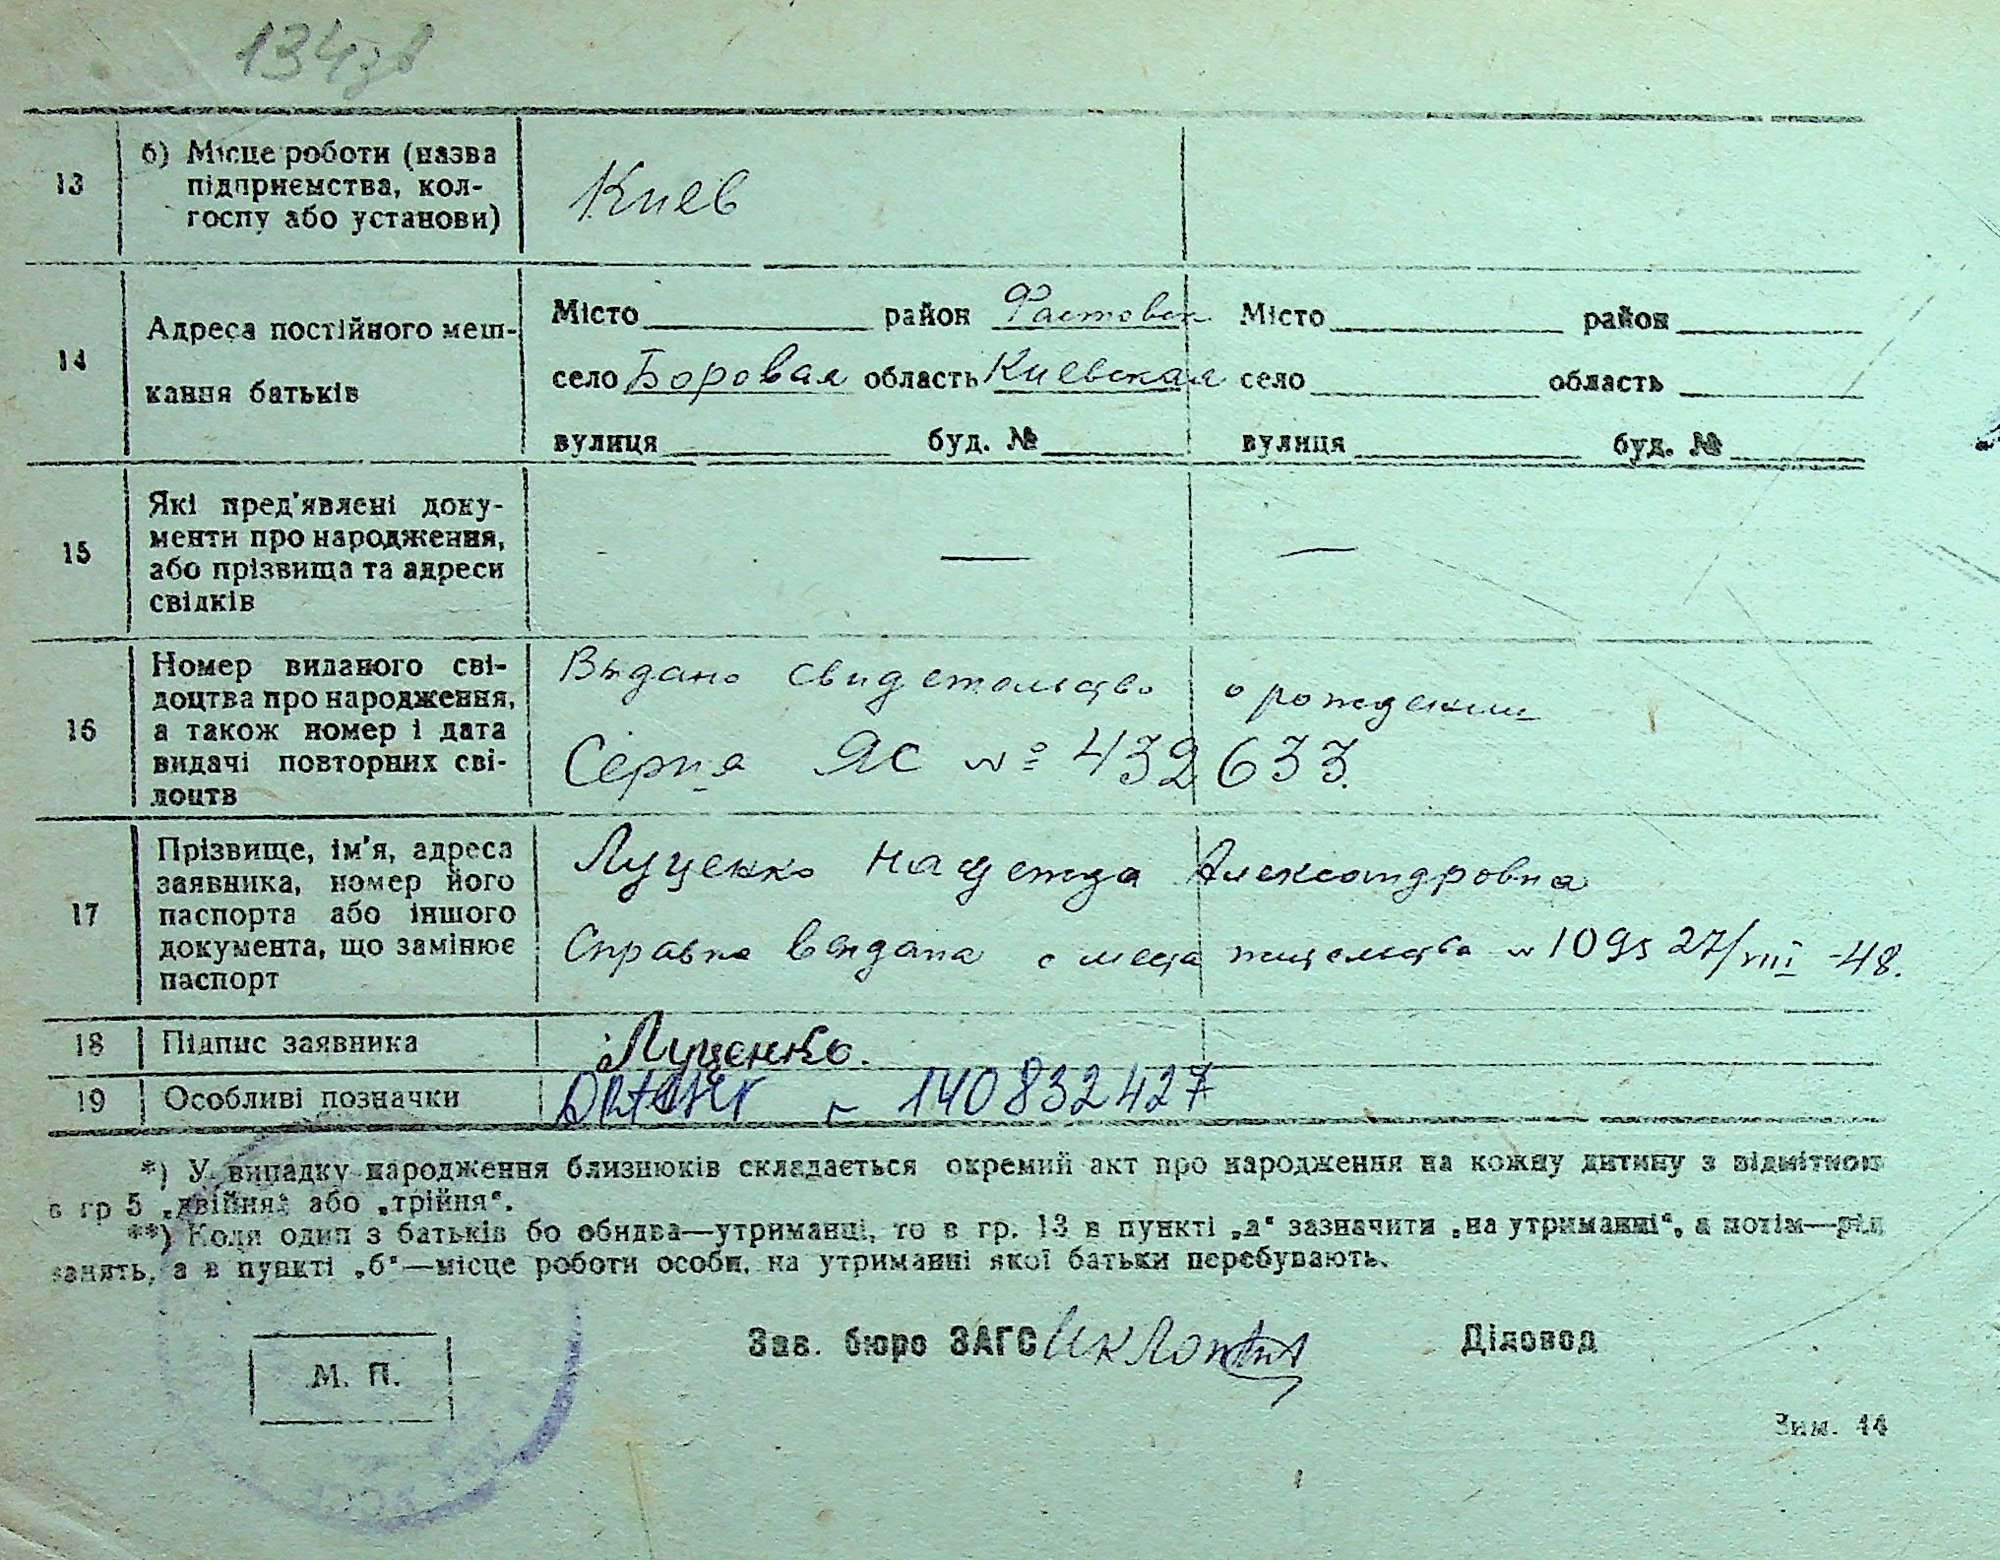 134зв
13
б) Місце роботи (назва
підприємства, кол-
госпу або установи)
Киев
14
Адреса постійного меш-
кання батьків
Місто район Фастовск Місто район
село Боровая область Киевская село область
вулиця буд. № вулиця буд. №
15
Які пред'явлені доку-
менти про народження,
або прізвища та адреси
свідків
— —
16
Номер виданого сві-
доцтва про народження,
а також номер і дата
видачі повторних сві-
доцтв
Выдано свидетельство о рождении
Серия ЯС № 432633.
17
Прізвище, ім'я, адреса
заявника, номер його
паспорта або іншого
документа, що замінює
паспорт
Луценко Надежда Александровна
Справка выдана с места жительства № 1095 27/VIII -48.
18 Підпис заявника Луценко.
19 Особливі позначки 140832427
*) У випадку народження близнюків складається окремий акт про народження на кожну дитину з відміткою
в гр 5 „двійня“ або „трійня“.
**) Коли один з батьків бо обидва—утриманці, то в гр. 13 в пункті „а“ зазначити „на утриманні“, а потім—рід
занять, а в пункті „б“—місце роботи особи, на утриманні якої батьки перебувають.
Зав. бюро ЗАГС Діловод
М. П.
Зим. 44